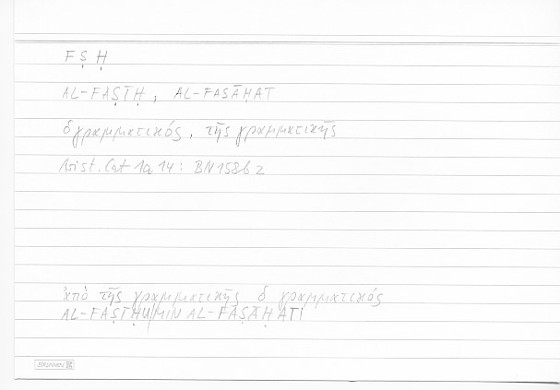 FṢḤ
AL-FAṢĪḤ, AL-FAṢĀḤAT
ὁ γραμματικός, τῆς γραμματικῆς
Arist. Cat 1a 14: BN 158b 2
ἀπὸ τῆς γραμματικῆς ὁ γραμματικός
AL-FAṢĪḤU MIN AL-FAṢĀḤATI
BRUNNEN